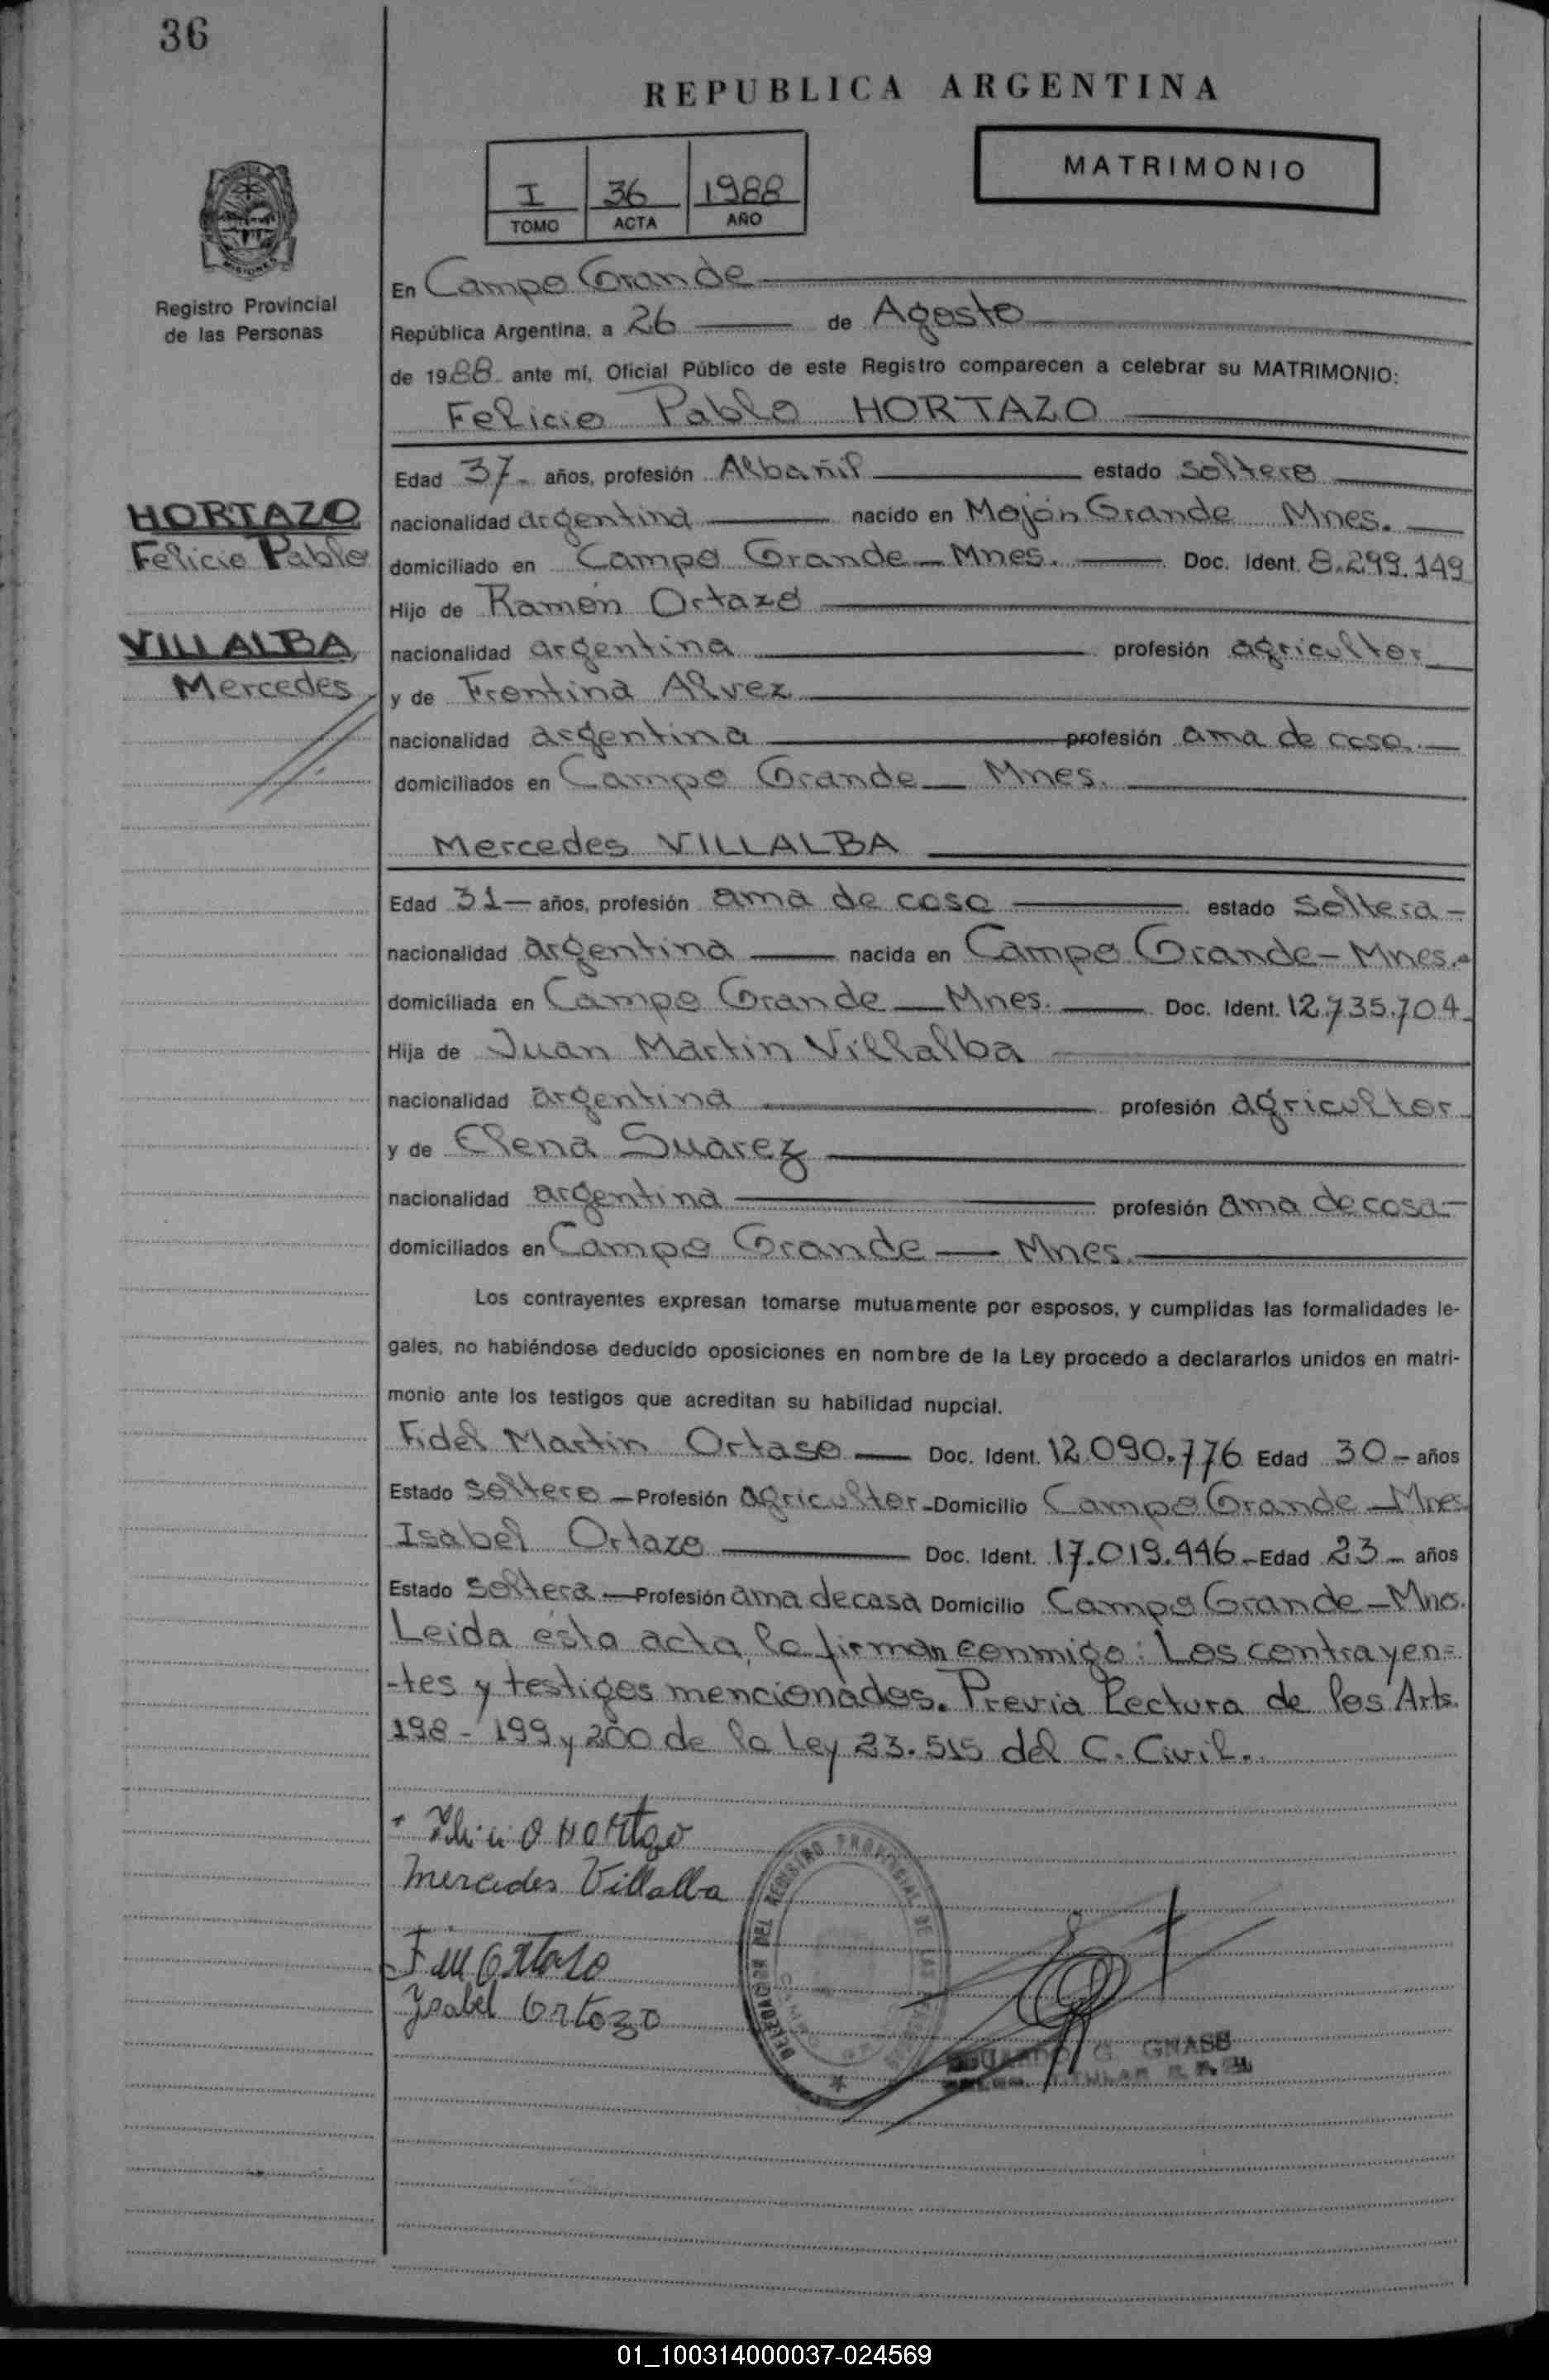 36
REPUBLICA ARGENTINA
MATRIMONIO
I 36 1988
TOMO ACTA AÑO
MISIONES
Registro Provincial
de las Personas
En Campo Grande
República Argentina, a 26 de Agosto
de 1988 ante mí, Oficial Público de este Registro comparecen a celebrar su MATRIMONIO:
Felicio Pablo HORTAZO
HORTAZO
Felicio Pablo
VILLALBA
Mercedes
Edad 37- años, profesión Albañil estado soltero
nacionalidad argentina nacido en Mojón Grande Mnes.
domiciliado en Campo Grande - Mnes. Doc. Ident. 8.299.149
Hijo de Ramón Ortazo
nacionalidad argentina profesión agricultor
y de Frontina Alvez
nacionalidad argentina profesión ama de casa
domiciliados en Campo Grande - Mnes.
Mercedes VILLALBA
Edad 31- años, profesión ama de casa estado soltera-
nacionalidad argentina nacida en Campo Grande - Mnes.
domiciliada en Campo Grande - Mnes. Doc. Ident. 12.735.704
Hija de Juan Martin Villalba
nacionalidad argentina profesión agricultor
y de Elena Suarez
nacionalidad argentina profesión ama de casa-
domiciliados en Campo Grande - Mnes.
Los contrayentes expresan tomarse mutuamente por esposos, y cumplidas las formalidades le-
gales, no habiéndose deducido oposiciones en nombre de la Ley procedo a declararlos unidos en matri-
monio ante los testigos que acreditan su habilidad nupcial.
Fidel Martin Ortaso Doc. Ident. 12.090.776 Edad 30- años
Estado soltero - Profesión agricultor - Domicilio Campo Grande - Mnes
Isabel Ortazo Doc. Ident. 17.019.446 - Edad 23- años
Estado soltera - Profesión ama de casa Domicilio Campo Grande - Mnes.
Leida ésta acta, la firman conmigo: Los contrayen=
-tes y testigos mencionados. Previa Lectura de los Arts.
198 - 199 y 200 de la Ley 23.515 del C. Civil.
Felicio Hortazo
Mercedes Villalba
F M Ortaso
Ysabel Ortozo
DELEGACION DEL REGISTRO PROVINCIAL DE LAS
EDUARDO G. GNASS
TITULAR
01_100314000037-024569